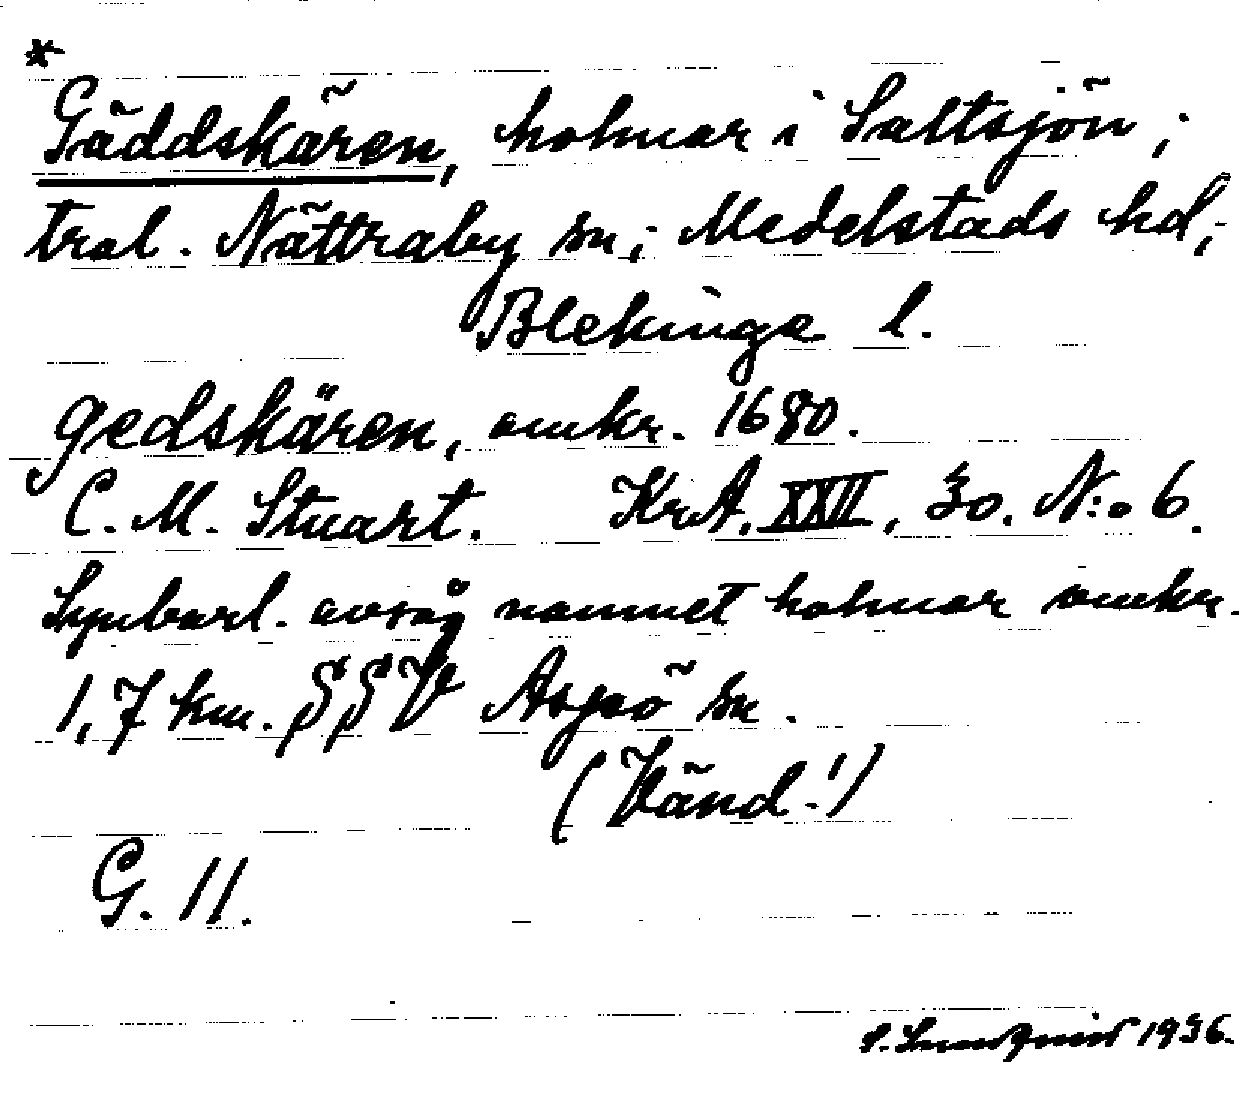 *
Gäddskären, holmar i Saltsjön;
trol. Nättraby sn; Medelstads hd;
Blekinge l.
gedskären, omkr. 1680.
C. M. Stuart. KrA. XXII, 30. N:o 6.
Synbarl. avsåg namnet holmar omkr.
1,7 km. SSV Aspö sn.
(Vänd!)
G. 11.
S. Lundqvist 1936.